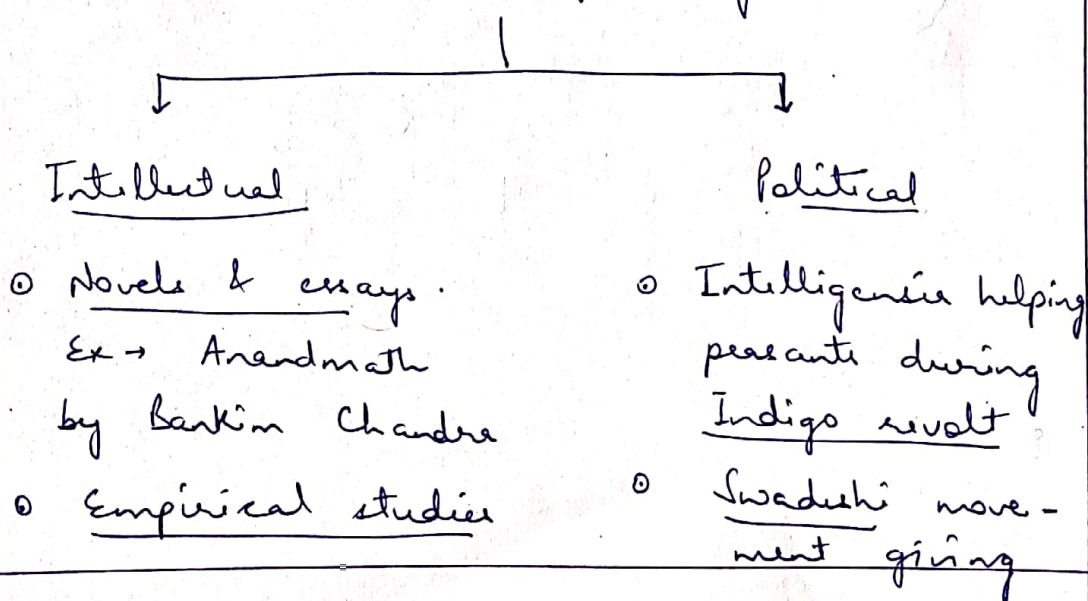 Intellectual
Political
⊙ Novels & essays.
Ex → Anandmath
by Bankim Chandra
⊙ Empirical studies
⊙ Intelligensia helping
peasants during
Indigo revolt
⊙ Swadeshi move-
ment giving